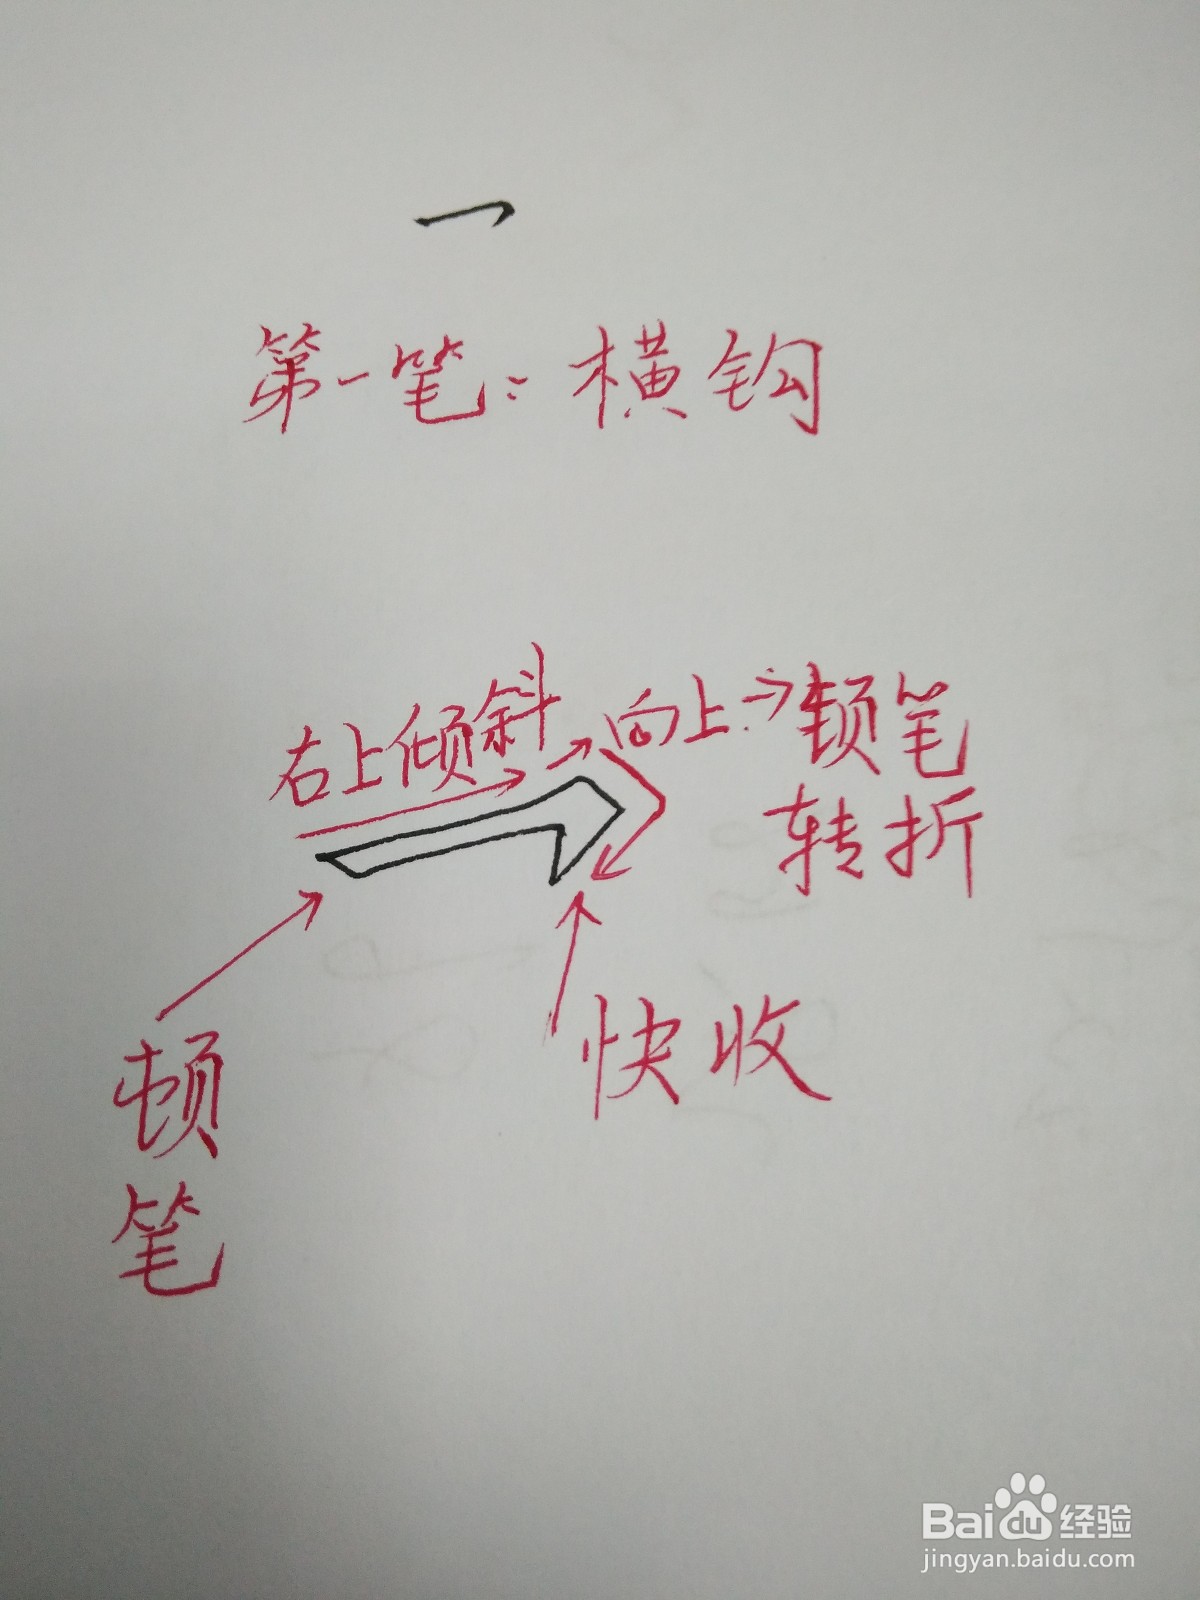 第一笔：横钩
右上倾斜
向上→顿笔
转折
快收
顿
笔
Baidu经验
jingyan.baidu.com